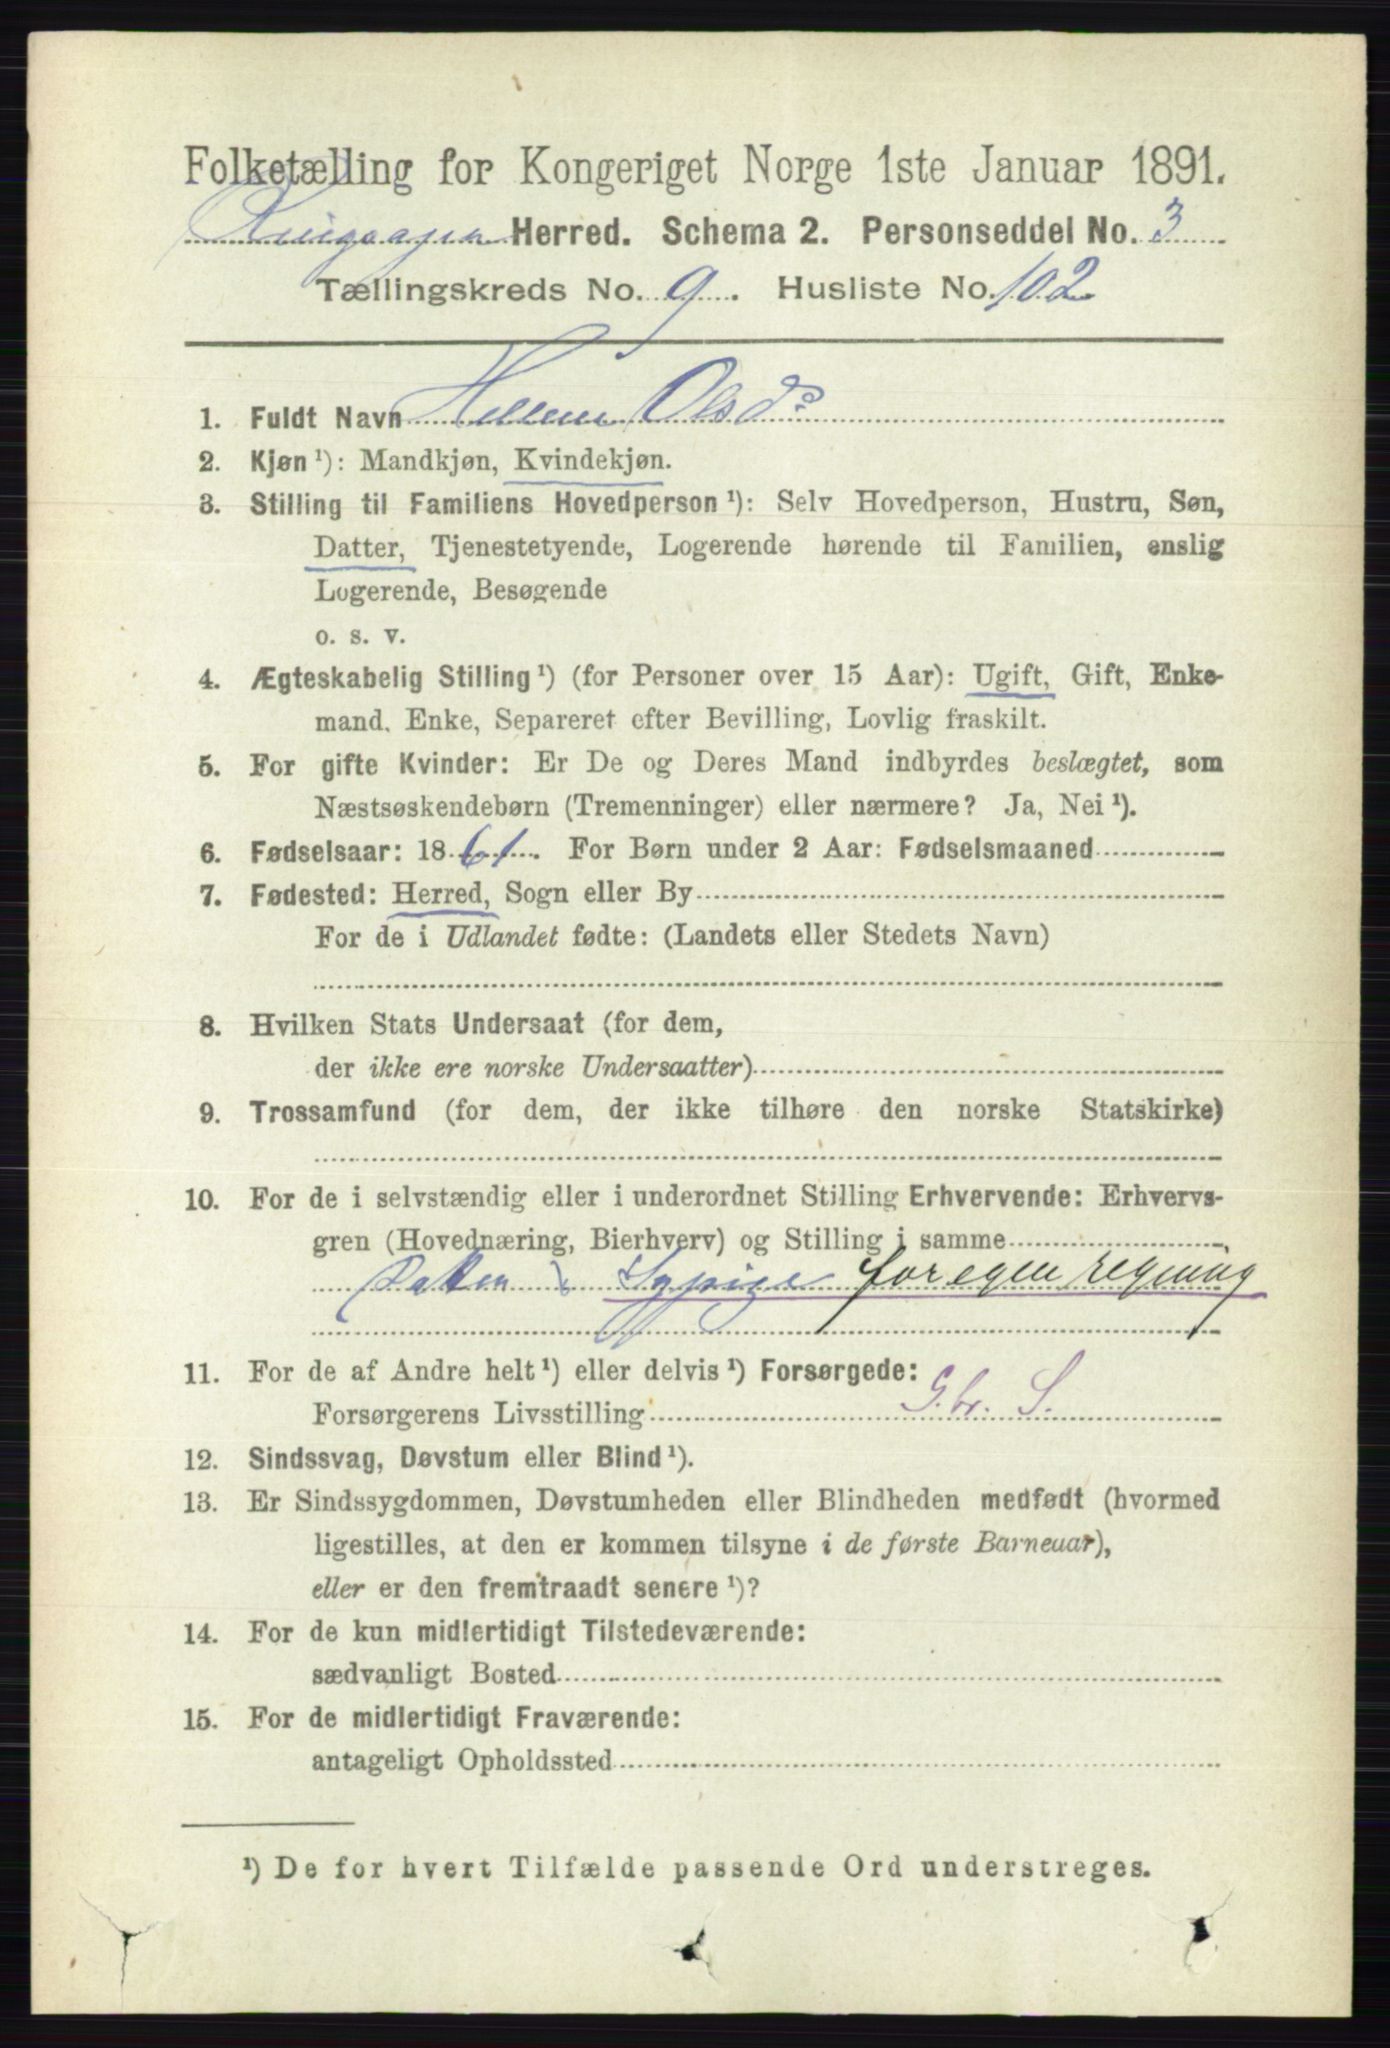 Folketælling for Kongeriget Norge 1ste Januar 1891.
Ringsaker Herred. Schema 2. Personseddel No. 3
Tællingskreds No. 9. Husliste No. 102
1. Fuldt Navn Hellene Olsd.
2. Kjøn ¹): Mandkjøn, Kvindekjøn.
3. Stilling til Familiens Hovedperson ¹): Selv Hovedperson, Hustru, Søn,
Datter, Tjenestetyende, Logerende hørende til Familien, enslig
Logerende, Besøgende
o. s. v.
4. Ægteskabelig Stilling ¹) (for Personer over 15 Aar): Ugift, Gift, Enke-
mand, Enke, Separeret efter Bevilling, Lovlig fraskilt.
5. For gifte Kvinder: Er De og Deres Mand indbyrdes beslægtet, som
Næstsøskendebørn (Tremenninger) eller nærmere? Ja, Nei ¹).
6. Fødselsaar: 1861. For Børn under 2 Aar: Fødselsmaaned
7. Fødested: Herred, Sogn eller By
For de i Udlandet fødte: (Landets eller Stedets Navn)
8. Hvilken Stats Undersaat (for dem,
der ikke ere norske Undersaatter)
9. Trossamfund (for dem, der ikke tilhøre den norske Statskirke)
10. For de i selvstændig eller i underordnet Stilling Erhvervende: Erhvervs-
gren (Hovednæring, Bierhverv) og Stilling i samme
Datter Sypige for egen regning
11. For de af Andre helt ¹) eller delvis ¹) Forsørgede:
Forsørgerens Livsstilling G.br. S.
12. Sindssvag, Døvstum eller Blind ¹).
13. Er Sindssygdommen, Døvstumheden eller Blindheden medfødt (hvormed
ligestilles, at den er kommen tilsyne i de første Barneaar),
eller er den fremtraadt senere ¹)?
14. For de kun midlertidigt Tilstedeværende:
sædvanligt Bosted
15. For de midlertidigt Fraværende:
antageligt Opholdssted
¹) De for hvert Tilfælde passende Ord understreges.